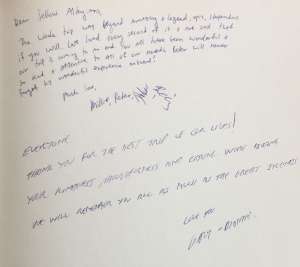 Dear fellow
The whole trip way beyond amazing a legend, epic, stupendous
if you will. Last loved every second of it & me sad that
our trip is coming to an end You all have been wonderful &
so kind & attentive to all of our needs Peter will never
forget his wonderful experience onboard!
Much love,
EVERYONE
THANK YOU FOR THE BEST TRIP OF OUR LIVES!
YOUR KINDNESS, THOUGHTFULNESS AND CARING WERE AMAZING
WE WILL REMEMBER YOU ALL AS MUCH AS THE GREAT SILENCES
LOVE FROM